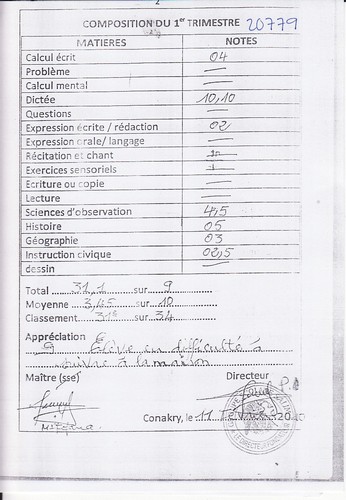 2
COMPOSITION DU 1er TRIMESTRE 20779
MATIERES NOTES
Calcul écrit 04
Problème
Calcul mental
Dictée 10,10
Questions
Expression écrite / rédaction 02
Expression orale/ langage
Récitation et chant
Exercices sensoriels
Ecriture ou copie
Lecture
Sciences d'observation 4,5
Histoire 05
Géographie 03
Instruction civique 02,5
dessin
Total 31,1 sur 9
Moyenne 3,45 sur 10
Classement 31e sur 34
Appréciation
Elève en difficulté à
suivre à la maison
Maître (sse) Directeur
Conakry, le 11